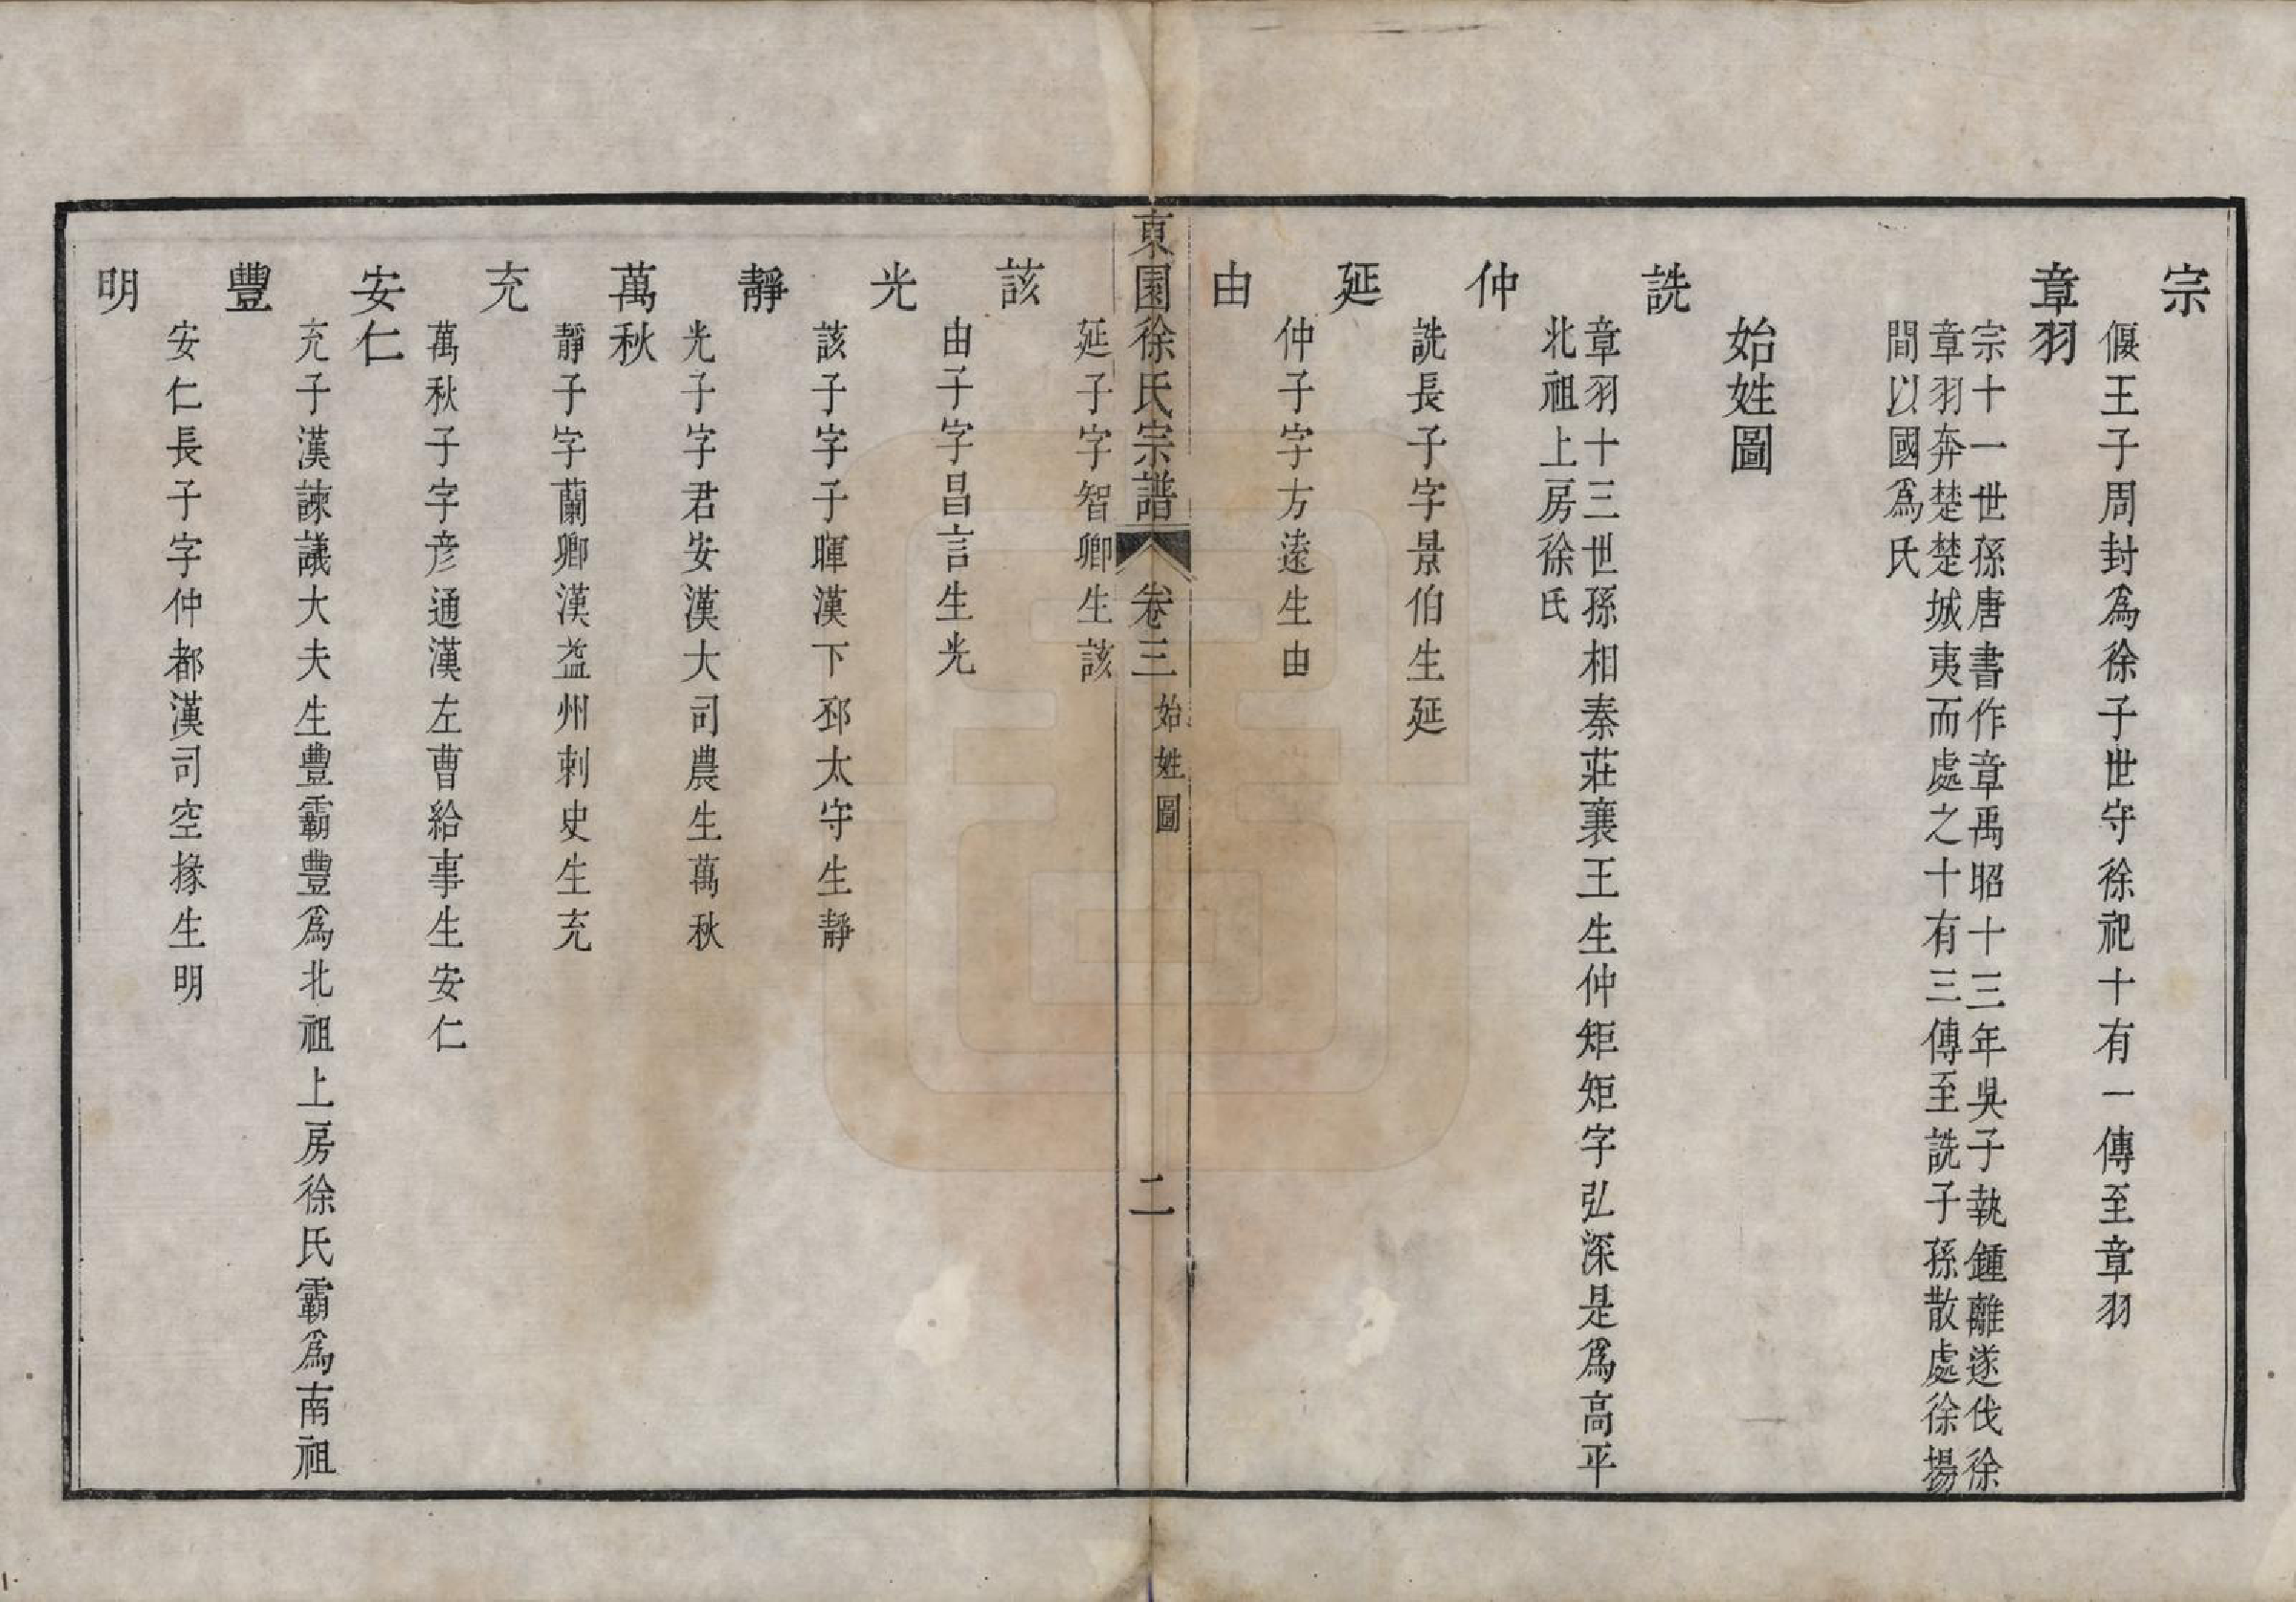 宗
偃王子周封爲徐子世守徐祀十有一傳至章羽
章羽
宗十一世孫唐書作章禹昭十三年吳子執鍾離遂伐徐
章羽奔楚楚城夷而處之十有三傳至詵子孫散處徐揚
間以國爲氏
始姓圖
詵
章羽十三世孫相秦莊襄王生仲矩矩字弘深是爲高平
北祖上房徐氏
仲
詵長子字景伯生延
延
仲子字方遠生由
由
東園徐氏宗譜 卷三 始姓圖 二
延子字智卿生該
該
由子字昌言生光
光
該子字子暉漢下邳太守生靜
靜
光子字君安漢大司農生萬秋
萬秋
靜子字蘭卿漢益州刺史生充
充
萬秋子字彦通漢左曹給事生安仁
安仁
充子漢諫議大夫生豐霸豐爲北祖上房徐氏霸爲南祖
豐
安仁長子字仲都漢司空掾生明
明